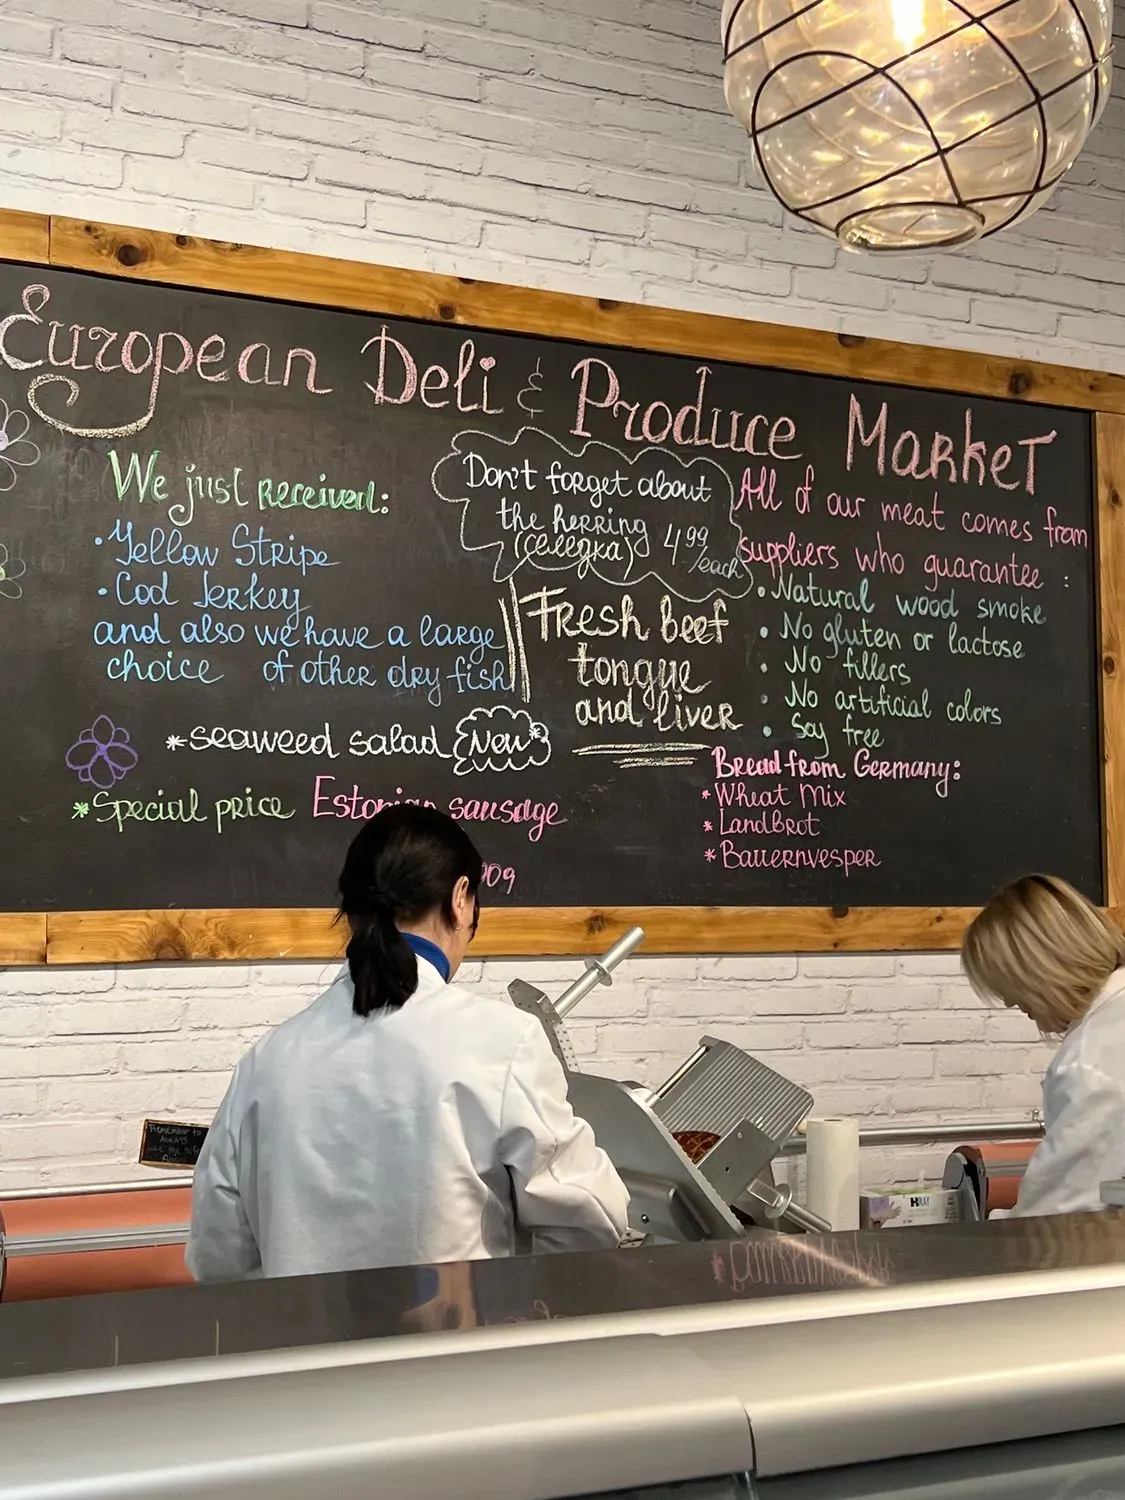 European Deli & Produce Market
We just received:
• Yellow Stripe
• Cod Jerkey
and also we have a large
choice of other dry fish
*seaweed salad New*
*Special price Estonian sausage
00g
Don't forget about
the herring
(селедка) 4.99/each
Fresh beef
tongue
and liver
All of our meat comes from
suppliers who guarantee :
• Natural wood smoke
• No gluten or lactose
• No fillers
• No artificial colors
• Soy free
Bread from Germany:
* Wheat Mix
* LandBrot
* Bauernvesper
Remember to